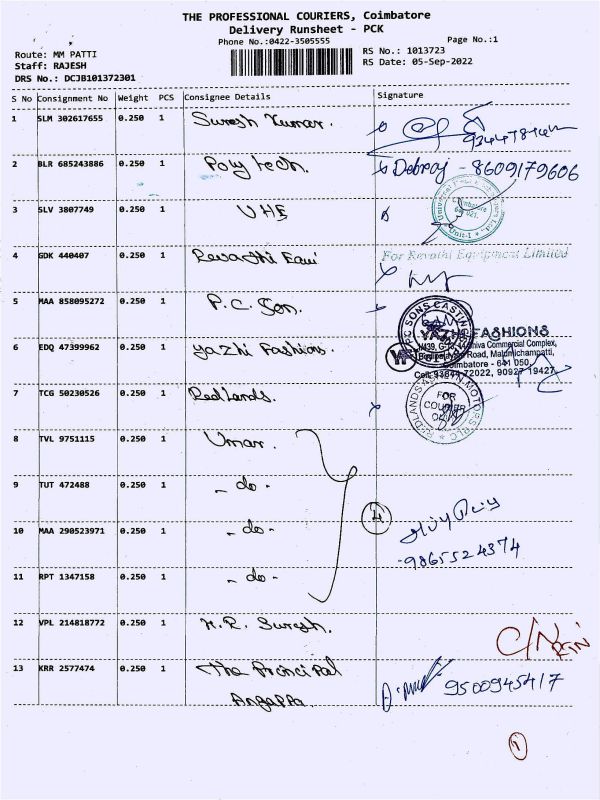 THE PROFESSIONAL COURIERS, Coimbatore
Delivery Runsheet - PCK
Phone No.:0422-3505555
Page No.:1
Route: MM PATTI
RS No.: 1013723
Staff: RAJESH
RS Date: 05-Sep-2022
DRS No.: DCJB101372301
S No Consignment No Weight PCS Consignee Details Signature
1 SLM 302617655 0.250 1 Suresh Kumar.
2 BLR 685243886 0.250 1 Poly tech. Debraj - 8609179606
3 SLV 3807749 0.250 1 UHE
Coimbatore
641 021.
Unit-1
4 GDK 440407 0.250 1 Revathi Equi For Revathi Equipment Limited
5 MAA 858095272 0.250 1 P.C. Son.
PC SONS CASTING
6 EDQ 47399962 0.250 1 Yazhi Fashions.
YAZHI FASHIONS
Commercial Complex,
Road, Malumichampatti,
Coimbatore - 641 050.
72022, 90927 19427
7 TCG 50230526 0.250 1 Redlands.
REDLANDS MOTORS PLC
FOR
COURIER
ONLY
8 TVL 9751115 0.250 1 Umar.
9 TUT 472488 0.250 1 - do -
4.
10 MAA 290523971 0.250 1 - do -
9865524374
11 RPT 1347158 0.250 1 - do -
12 VPL 214818772 0.250 1 H.R. Suresh.
13 KRR 2577474 0.250 1 The Principal 9500945417
Angappa.
1